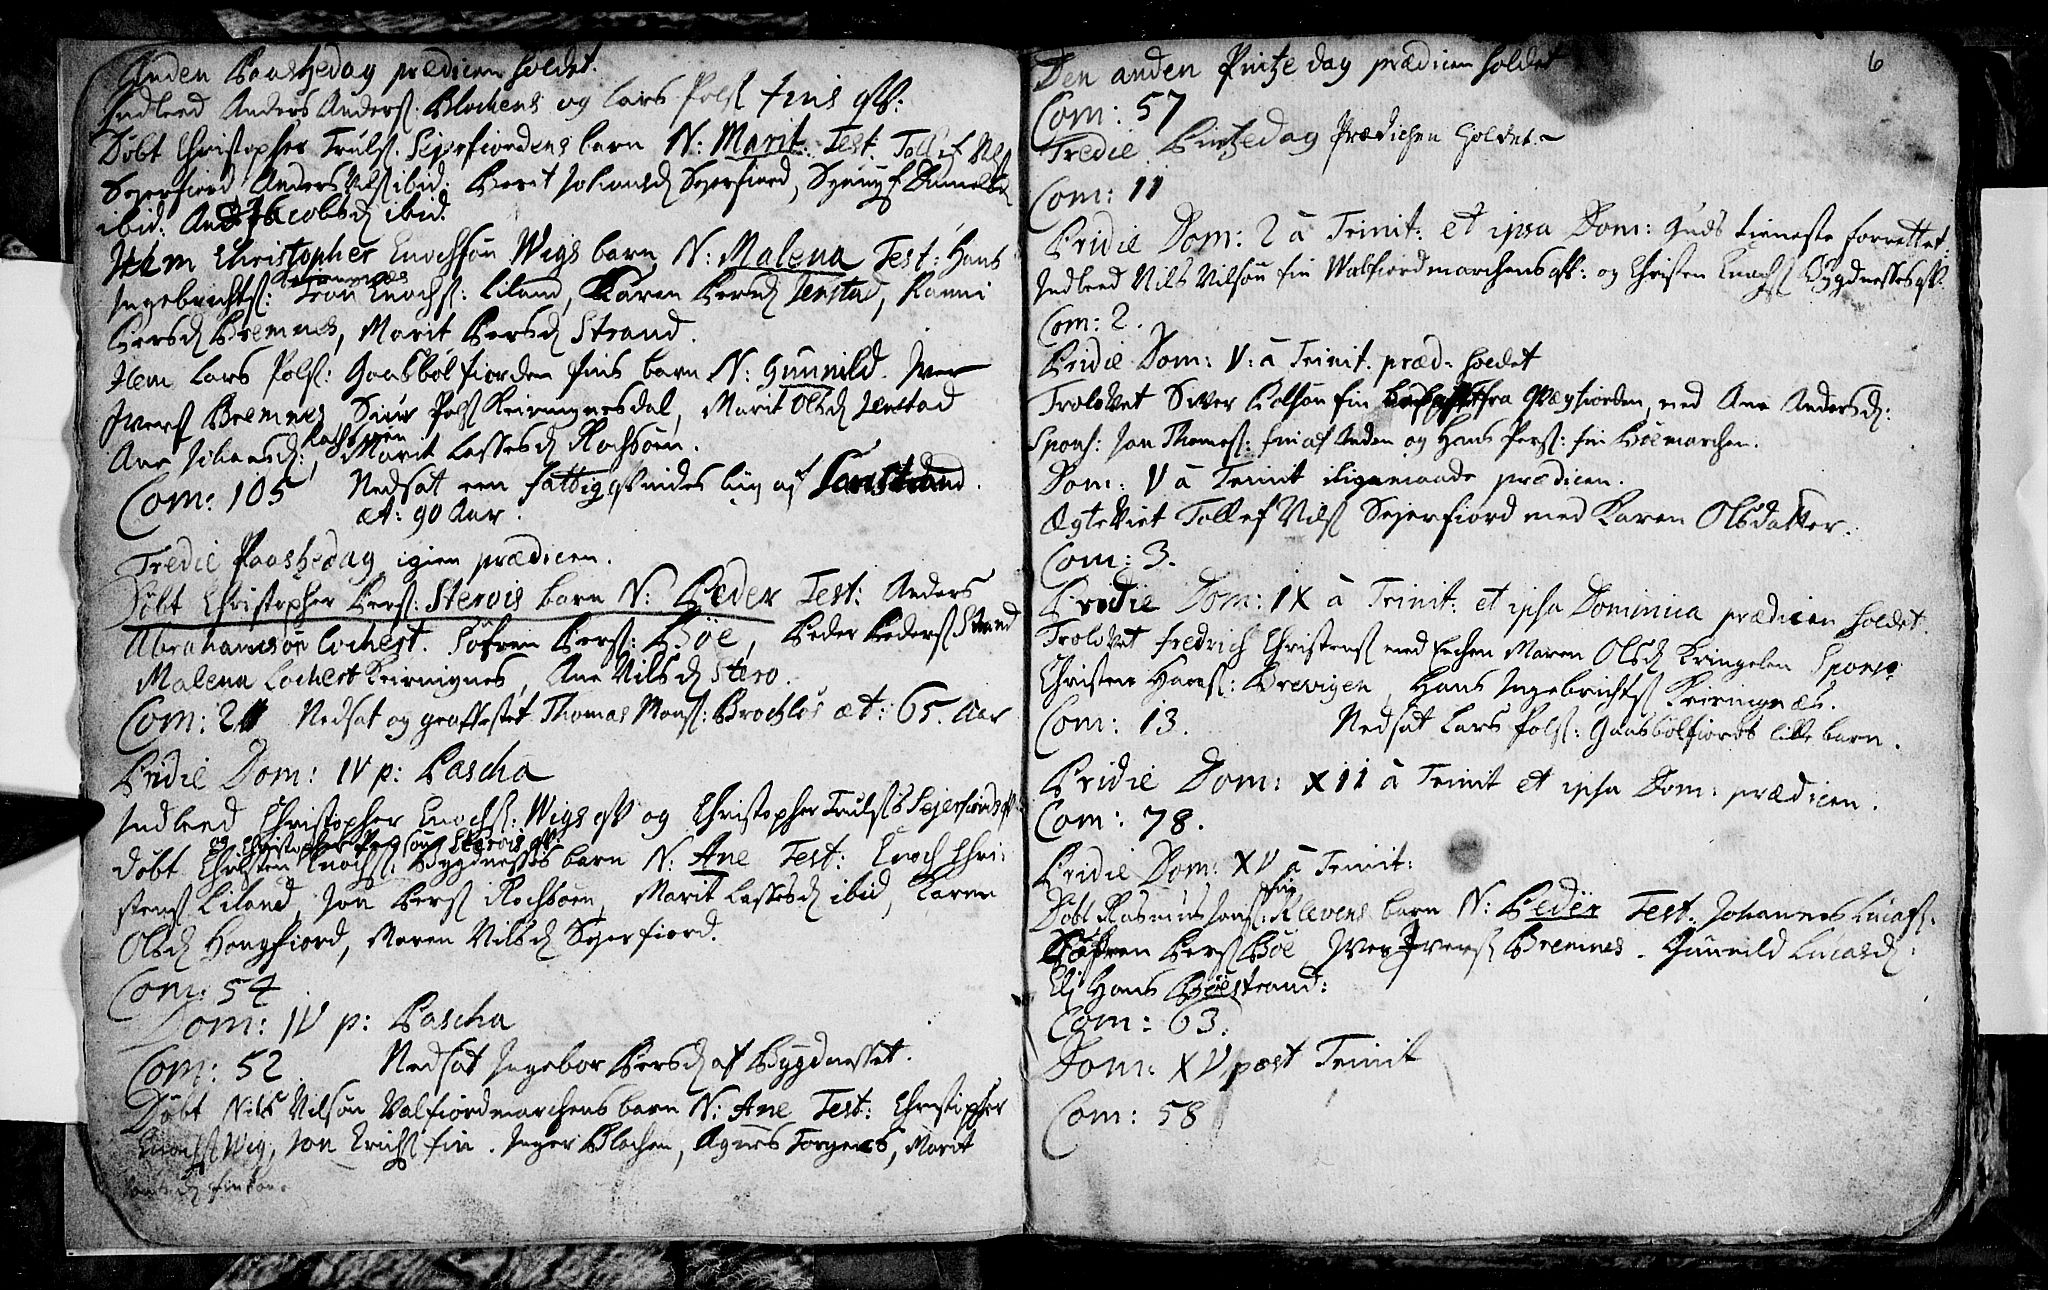 Anden Paaskedag prædicen holdet.
Indleed Anders Anderss: Blochens og Lars Polss fins qv:
Døbt Christopher Trulss. Sejerfiordens barn N: Marit. Test. Tollef Nilss
Sejerfiord, Anders Nilss ibid: Berit Johansd Sejerfiord,
ibid: Ane Jacobsd ibid.
Item Christopher Enochsøn Wigs barn N: Malena Test: Hans
Ingebrichtss: Keiringnes Enochss: Liland, Karen Persd Jenstad, Ranni
Persd Bremnes, Marit Persd Strand.
Item Lars Polss: Gaasbolfiorden fins barn N: Gunnild. Iver
Iverss Bremnes, Siur Polss Keiringnesdal, Marit Olsd Jenstad
Ane Johansd: Rochsøen, Marit Lassesd Rochsøen.
Com: 105 Nedsat een fattig qvindes liig af Jenstrand.
æt: 90 Aar.
Tredie Paaskedag igien prædicen.
Døbt Christopher Perss: Sterois barn N: Peder Test: Anders
Abrahamsøn Lochert. Søfren Perss: Bøe, Peder Pederss Strand
Malena Lochert Keiringnes, Ane Nilsd Stero.
Com: 21 Nedsat og graffæstet Thomas Monss: Brochløs æt: 65. Aar
Pridie Dom: IV p: Pascha
Indleed Christopher Enochss: Wigs qv og Christopher Trulss Sejerfiords qv
og Christopher Persøns Sterois qv
døbt Christen Enochss: Bygdnesses barn N: Ane Test: Enoch Chri-
stenss Liland, Jon Perss Rochsøen, Marit Lassesd ibid, Karen
Olsd Hongfiord, Maren Nilsd Sejerfiord.
Com: 54
Dom: IV p: Pascha
Com: 52 Nedsat Ingebor Persd af Bygdnesset.
Døbt Nils Nilsøn Valfiordmarchens barn N: Ane Test: Christopher
Enochss Wig, Jon Erichss fin. Inger Blochen, Agnes Torgers, Marit
finkone.
6
Den anden Pintzedag prædicen holdet
Com: 57
Tredie Pintzedag Prædichen holdet.
Com: 11
Pridie Dom: 2 à Trinit: et ipsa Dom: Guds tieneste forrettet.
Indleed Nils Nilsøn fin Walfiordmarchens qv: og Christen Enochss Bygdnesses qv.
Com: 2.
Pridie Dom: V: à Trinit. præd: holdet
Trolovet Siver Polsøn fin fra Qvægfiorden, med Ane Andersd:
Spons: Jon Thomess: fin af Anden og Hans Perss: fin Bøemarchen.
Dom: V à Trinit ligemaade prædicen.
Ægteviet Tollef Nilss Sejerfiord med Karen Olsdatter.
Com: 3.
Pridie Dom: IX à Trinit: et ipsa Dominica prædicen holdet.
Trolovet Fredrich Christenss med Enchen Maren Olsd Kringelen Spons:
Christen Hanss: Brevigen, Hans Ingebrichtss Keiringnæs.
Com: 13. Nedsat Lars Polss: Gaasbolfiords lille barn.
Pridie Dom: XII à Trinit et ipsa Dom: prædicen.
Com: 78.
Pridie Dom: XV à Trinit:
Døbt Rasmus Jonss: fin Klevens barn N: Peder Test. Johannes Lucass:
Søfren Perss Bøe, Iver Iverss Bremnes. Gunnild Lucasd:
Elj Hans Bøestrand:
Com: 63.
Dom: XV post Trinit
Com: 58